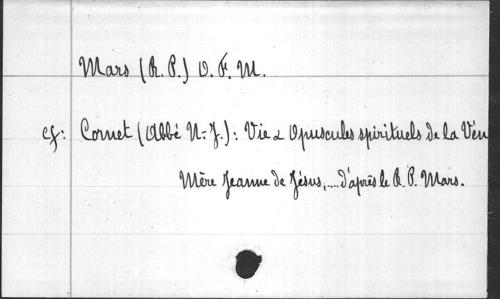 Mars (R.P.) O.F.M.
cf: Cornet (Abbé N.-J.): Vie & Opuscules spirituels de la Vén
Mère Jeanne de Jésus,....d'après le R.P. Mars.